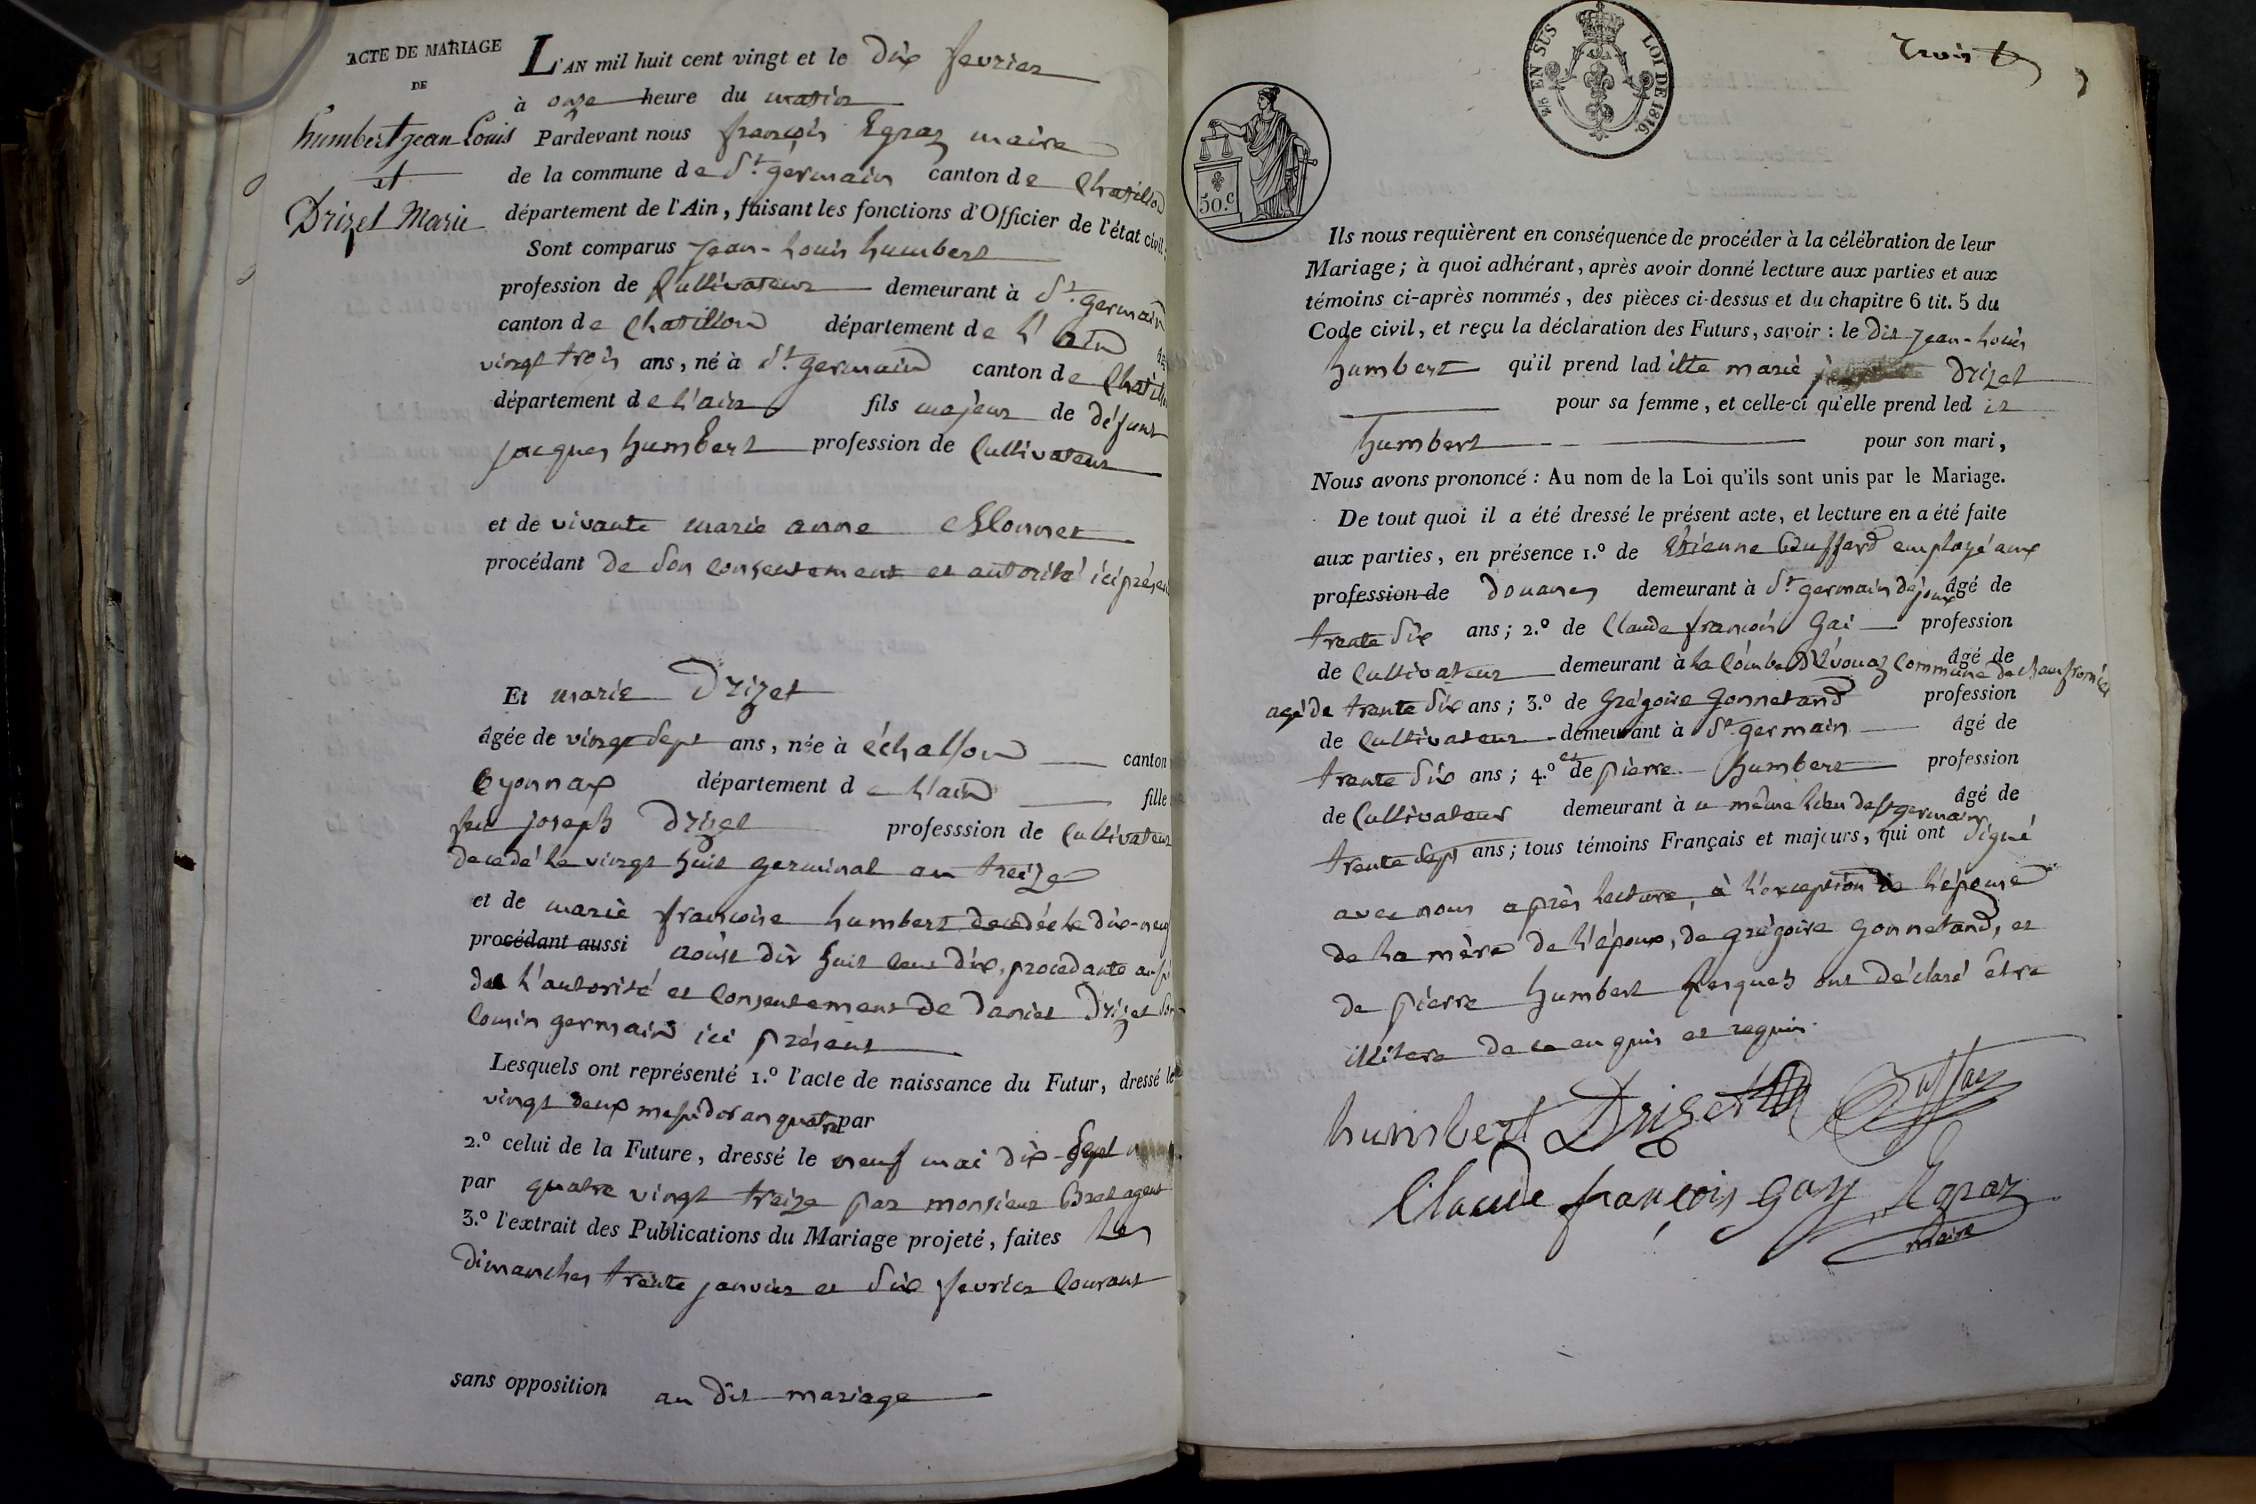 ACTE DE MARIAGE
DE
humbert jean Louis
et
Drizet Marie
L'AN mil huit cent vingt et le dix fevrier
à onze heure du matin
Pardevant nous françois Egraz maire
de la commune de St. germain canton de Chatillon
département de l'Ain, faisant les fonctions d'Officier de l'état civil
Sont comparus jean-Louis humbert
profession de Cultivateur demeurant à St. germain
canton de Chatillon département de l'ain
vingt trois ans, né à St. germain canton de Chatillon
département de l'ain fils majeur de défunt
jacques humbert profession de Cultivateur
et de vivante marie anne
procédant de son consentement et autorité ici présente
Et marie Drizet
âgée de vingt sept ans, née à échallon canton
Oyonnax département de l'ain fille
feu joseph Drizet professsion de Cultivateur
decedé le vingt huit germinal an treize
et de marie françoise humbert decedée le dix-neuf
procédant aussi août dix huit cent dix, procedante aussi
de l'autorité et consentement de daniel Drizet son
cousin germain ici présent
Lesquels ont représenté 1.º l'acte de naissance du Futur, dressé le
vingt deux messidor an quatre par
2.º celui de la Future, dressé le neuf mai dix-sept
par quatre vingt treize par monsieur Bret agent
3.º l'extrait des Publications du Mariage projeté, faites les
dimanches trente janvier et six fevrier courant
sans opposition au dit mariage
trois
25 EN SUS
LOI DE 1816.
50.c
Ils nous requièrent en conséquence de procéder à la célébration de leur
Mariage; à quoi adhérant, après avoir donné lecture aux parties et aux
témoins ci-après nommés, des pièces ci-dessus et du chapitre 6 tit. 5 du
Code civil, et reçu la déclaration des Futurs, savoir : le dit jean-Louis
humbert qu'il prend ladite marie Drizet
pour sa femme, et celle-ci qu'elle prend ledit
humbert pour son mari,
Nous avons prononcé : Au nom de la Loi qu'ils sont unis par le Mariage.
De tout quoi il a été dressé le présent acte, et lecture en a été faite
aux parties, en présence 1.º de Etienne Buffard employé aux
profession de douanes demeurant à St germain de joux âgé de
trente six ans; 2.º de Claude françois Gai profession
de Cultivateur demeurant à la Combe d'Evouaz commune de Chamfromier âgé de
agé de trente six ans; 3.º de Grégoire Gonnetand profession
de Cultivateur demeurant à St germain âgé de
trente six ans; 4.º et de pierre humbert profession
de Cultivateur demeurant à u même lieu de St germain âgé de
trente sept ans; tous témoins Français et majeurs, qui ont signé
avec nous après lecture, à l'exception de l'épouse
de la mère de l'époux, de grégoire Gonnetand, et
de pierre humbert lesquels ont déclaré être
illitere de ce enquis et requis.
humbert Drizet Buffard
Claude françois gay Egraz
maire